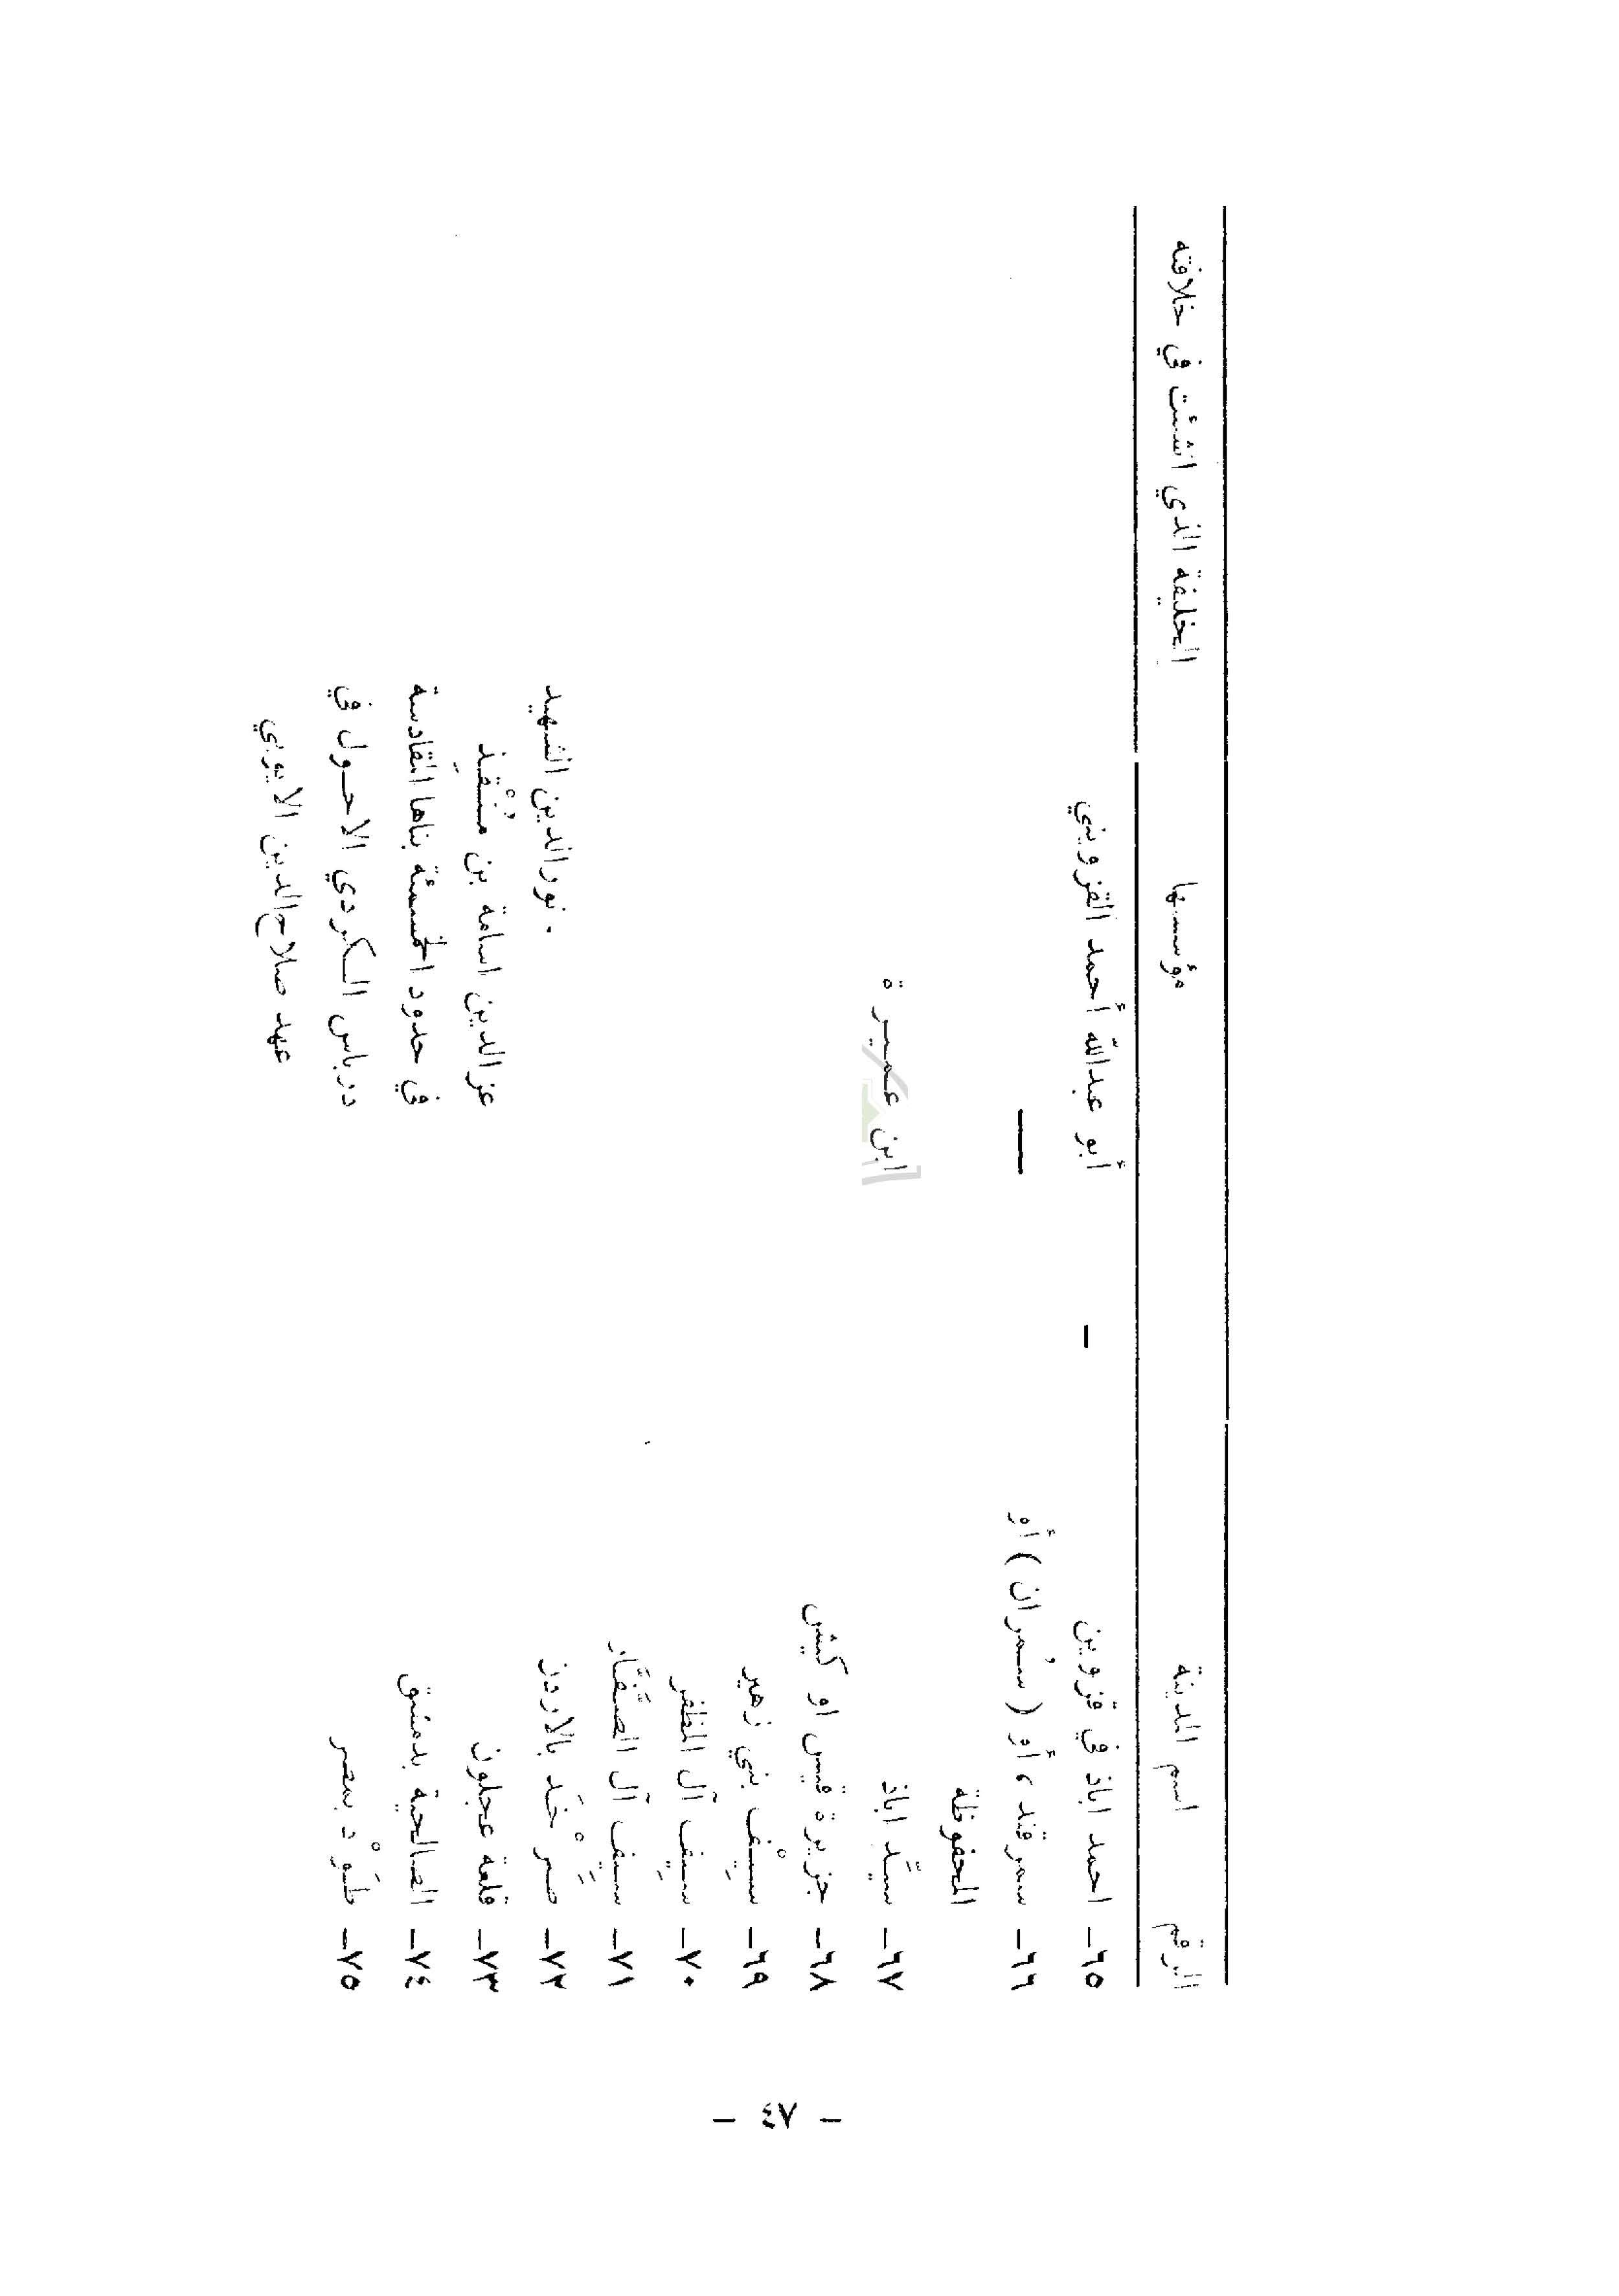 الرقم اسم المدينة مؤسسها الخليفة الذي انشئت في خلافته
٦٥- احمد اباذ في قزوين - أبو عبدالله أحمد القزويني
٦٦- سمرقند ، أو ( سُمران ) أو —
المحفوظة
٦٧- سيَّد اباذ ابن عميرة
٦٨- جزيرة قيس او كيش
٦٩- سِيْف بني زهير
٧٠- سِيف آل المظفر
٧١- سيف آل الصَفَّار
٧٢- صَرْخَد بالاردن نورالدين الشهيد
٧٣- قلعة عجلون عزالدين اسامة بن مُنْقِذ
٧٤- الصالحية بدمشق في حدود الخمسمئة بناها المقادسة
٧٥- طَوْد بمصر درباس الكردي الاحول في
عهد صلاح الدين الايوبي
- ٤٧ -